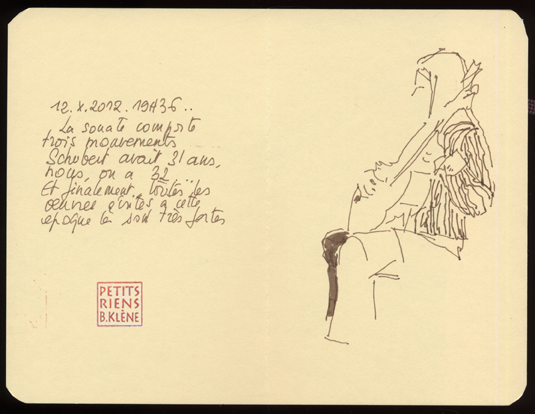 12.X.2012. 19H36..
La sonate comporte
trois mouvements
Schubert avait 31 ans,
nous, on a 32
Et finalement, toutes les
œuvres écrites à cette
époque là sont très fortes
PETITS
RIENS
B.KLÈNE